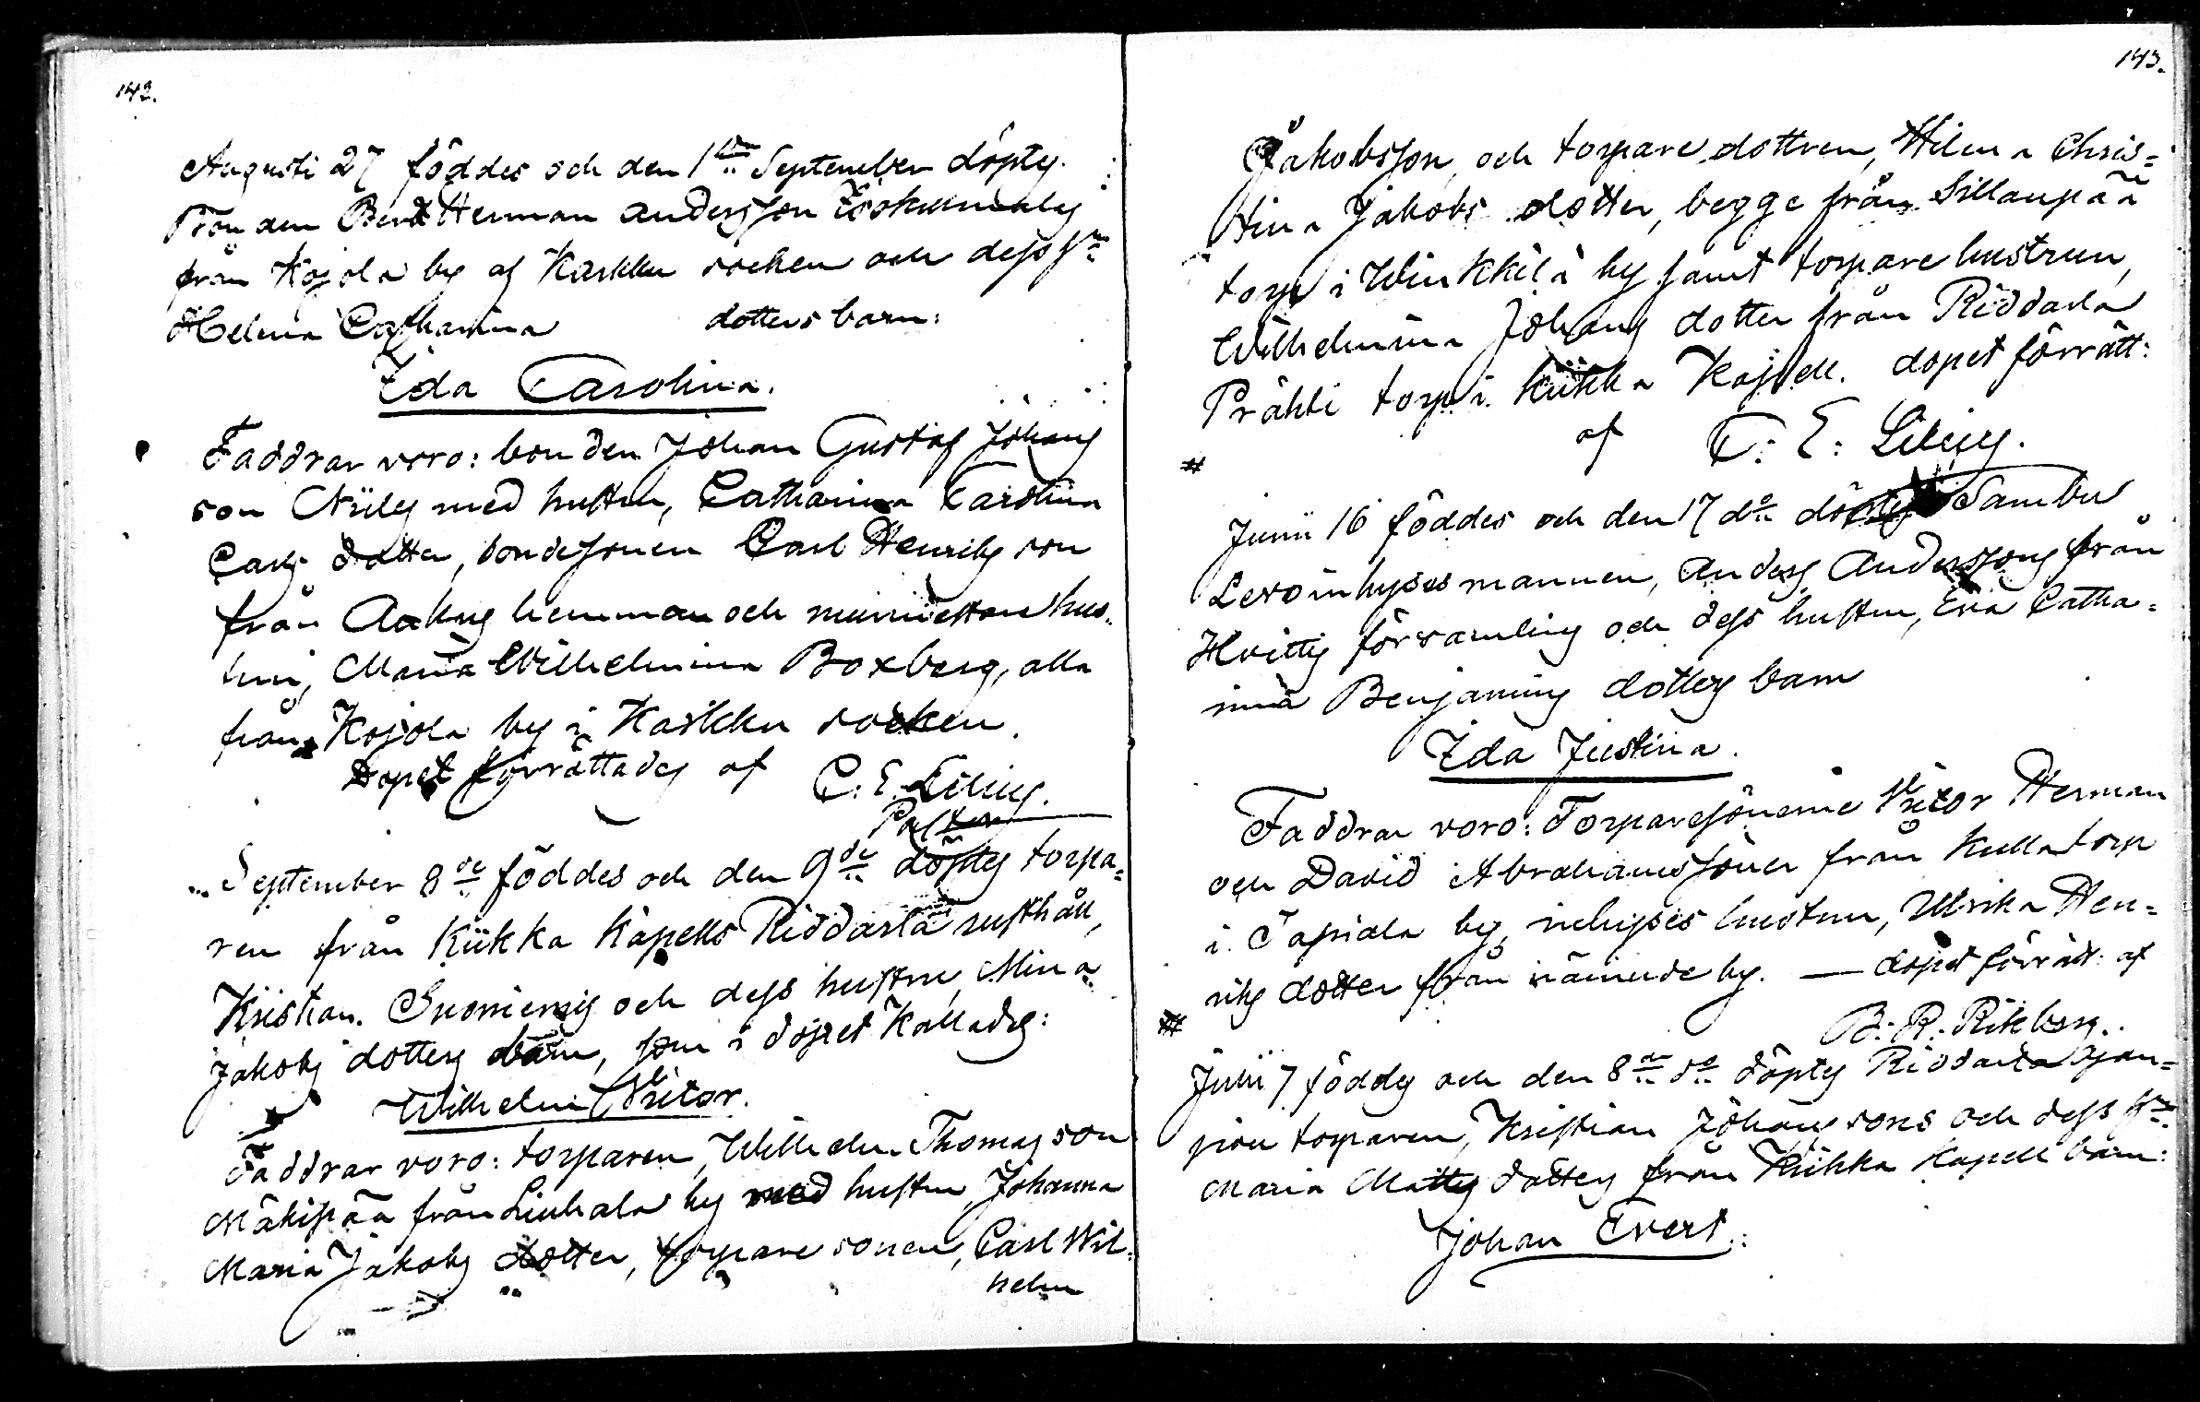 142.
Augusti 27 föddes och den 1sta September döptes
från den Herman Andersson
från Kojola by af Karkku socken och dess h:u
Helena Catharina dotters barn:
Ida Carolina.
Faddrar voro: bonden Johan Gustaf Johans
son med hustru, Catharina Carolina
Carls dotter, bondesonen Carl Henriks son
från hemman och hus-
trun, Maria Wilhelmina Boxberg, alla
från Kojola by i Karkku socken.
Dopet förrättades af C. E. Lilius.
Pastor
September 8de föddes och den 9de döptes torpa=
ren från Kiikka Kapells Riddarla rusthåll,
Kristian Suoniemis och dess hustru, Mina
Jakobs dotters barn, som i dopet Kallades:
Wilhelm Viktor.
Faddrar voro: torparen, Wilhelm Thomas son
Mäkipää från Liuhala by med hustru, Johanna
Maria Jakobs dotter, torpare sonen, Carl Wil=
helm
143.
Jakobsson, och torpare dottren, Hilma Chris=
tina Jakobs dotter, begge från Sillanpää
torp i Winkkilä by samt torpare hustrun,
Wilhelmina Johans dotter från Riddarla
Prähti torp i Kiikka Kapell. dopet förrätt:
af C. E. Lilius.
Junii 16 föddes och den 17 do döptes Sambu
Levo inhysesmannen, Anders Anderssons från
Hvittis församling och dess hustru, Eva Catha=
rina Benjamins dotters barn
Ida Justina.
Faddrar voro: Torparesönerne Viktor Herman
och David Abrahamssöner från Kulla torp
i by, inhyses hustrun, Ulrika Hen=
riks dotter från nämnde by. — dopet förrätt: af
B. R. Rikberg.
Julii 7 föddes och den 8de do döptes Riddarla
torparen, Kristian Johans sons och dess h:u
Maria Matts dotters från Kiikka Kapell barn:
Johan Evert: